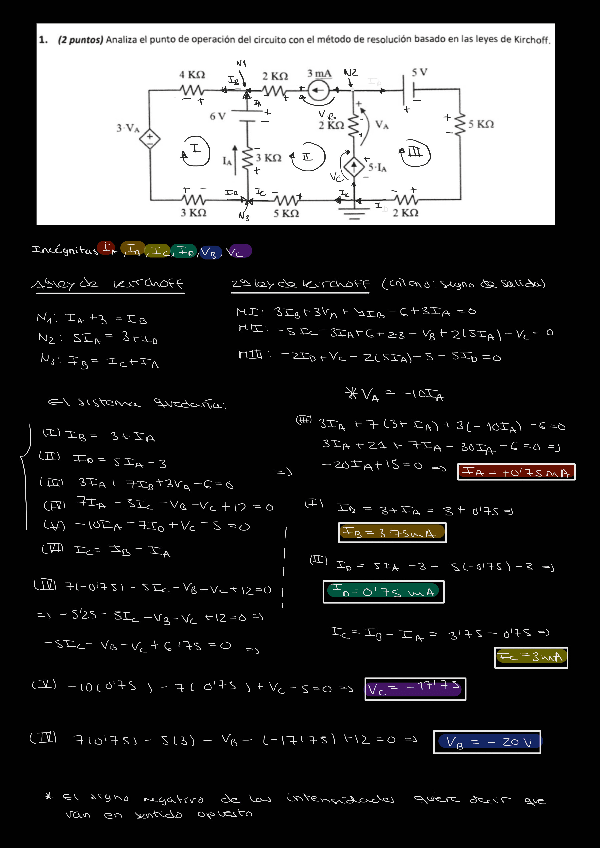 1. (2 puntos) Analiza el punto de operación del circuito con el método de resolución basado en las leyes de Kirchoff.
N1 N2
4 KΩ I_B 2 KΩ 3 mA 5 V
6 V I_A V_B 2 KΩ V_A 5 KΩ
3·V_A I II III
I_A 3 KΩ V_C 5·I_A
3 KΩ I_B N3 I_C 5 KΩ I_C 2 KΩ
Incógnitas I_A, I_B, I_C, I_D, V_B, V_C
1ª ley de Kirchoff
N1: I_A + 3 = I_B
N2: 5I_A = 3 + I_D
N3: I_B = I_C + I_A
2ª ley de Kirchoff (criterio: signo de salida)
MI: 3I_B + 3V_A + 4I_B - 6 + 3I_A = 0
MII: -5I_C - 3I_A + 6 + 2·3 - V_B + 2(5I_A) - V_C = 0
MIII: -2I_D + V_C - 2(5I_A) - 5 - 5I_D = 0
* V_A = -10I_A
El sistema quedaría:
(I) I_B = 3 + I_A
(II) I_D = 5I_A - 3
(III) 3I_A + 7I_B + 3V_A - 6 = 0
(IV) 7I_A - 5I_C - V_B - V_C + 12 = 0
(V) -10I_A - 7I_D + V_C - 5 = 0
(VI) I_C = I_B - I_A
=>
(III) 3I_A + 7(3 + I_A) + 3(-10I_A) - 6 = 0
3I_A + 21 + 7I_A - 30I_A - 6 = 0 =>
-20I_A + 15 = 0 => I_A = +0'75 mA
(I) I_B = 3 + I_A = 3 + 0'75 =>
I_B = 3'75 mA
(II) I_D = 5I_A - 3 = 5(-0'75) - 3 =>
I_D = 0'75 mA
I_C = I_B - I_A = 3'75 - 0'75 =>
I_C = 3 mA
(IV) 7(-0'75) - 5I_C - V_B - V_C + 12 = 0
=> -5'25 - 5I_C - V_B - V_C + 12 = 0 =>
-5I_C - V_B - V_C + 6'75 = 0 =>
(V) -10(0'75) - 7(0'75) + V_C - 5 = 0 => V_C = -17'75
(IV) 7(0'75) - 5(3) - V_B - (-17'75) + 12 = 0 => V_B = -20 V
* El signo negativo de las intensidades quiere decir que
van en sentido opuesto